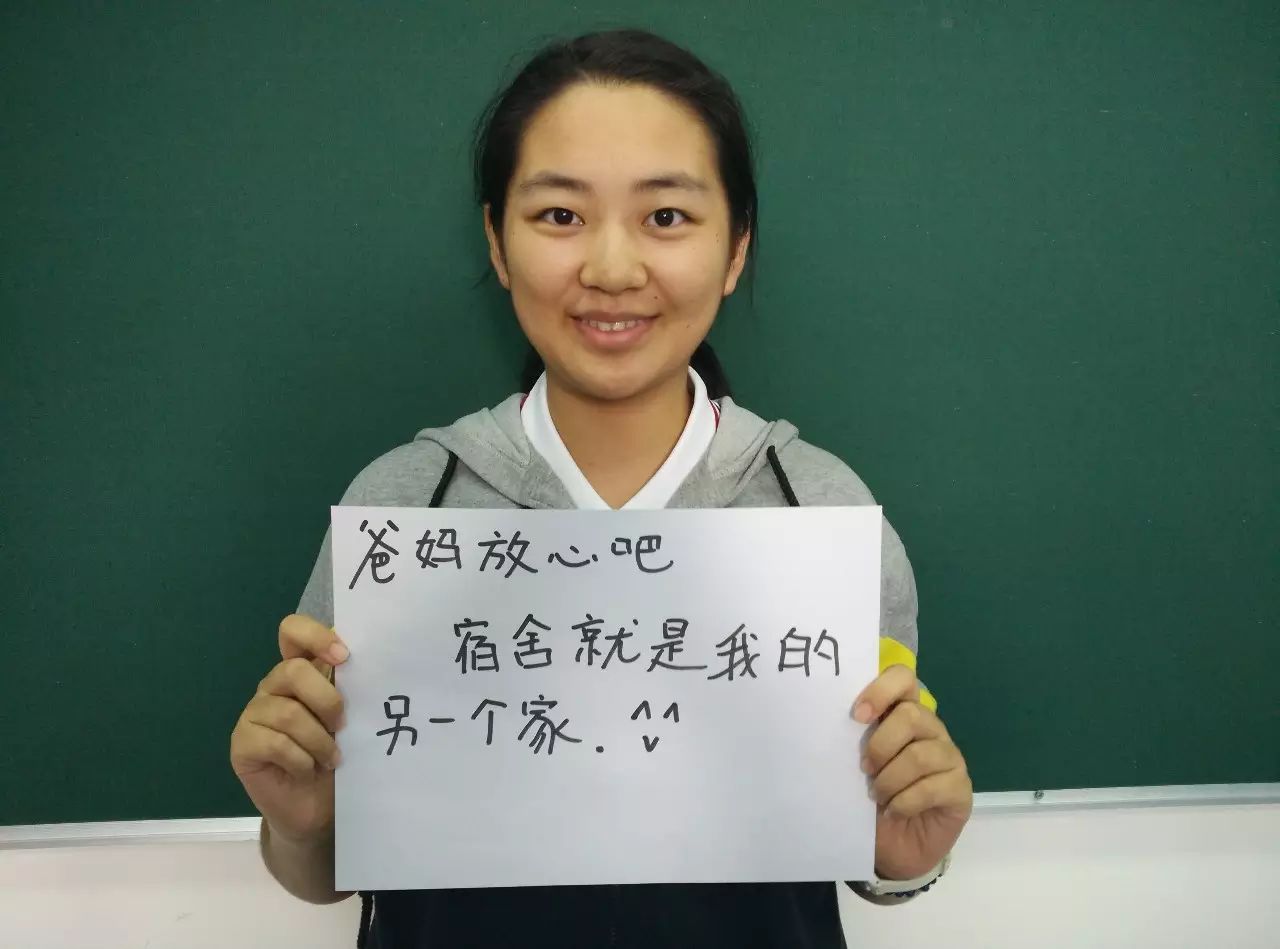 爸妈放心吧
宿舍就是我的
另一个家. ^v^